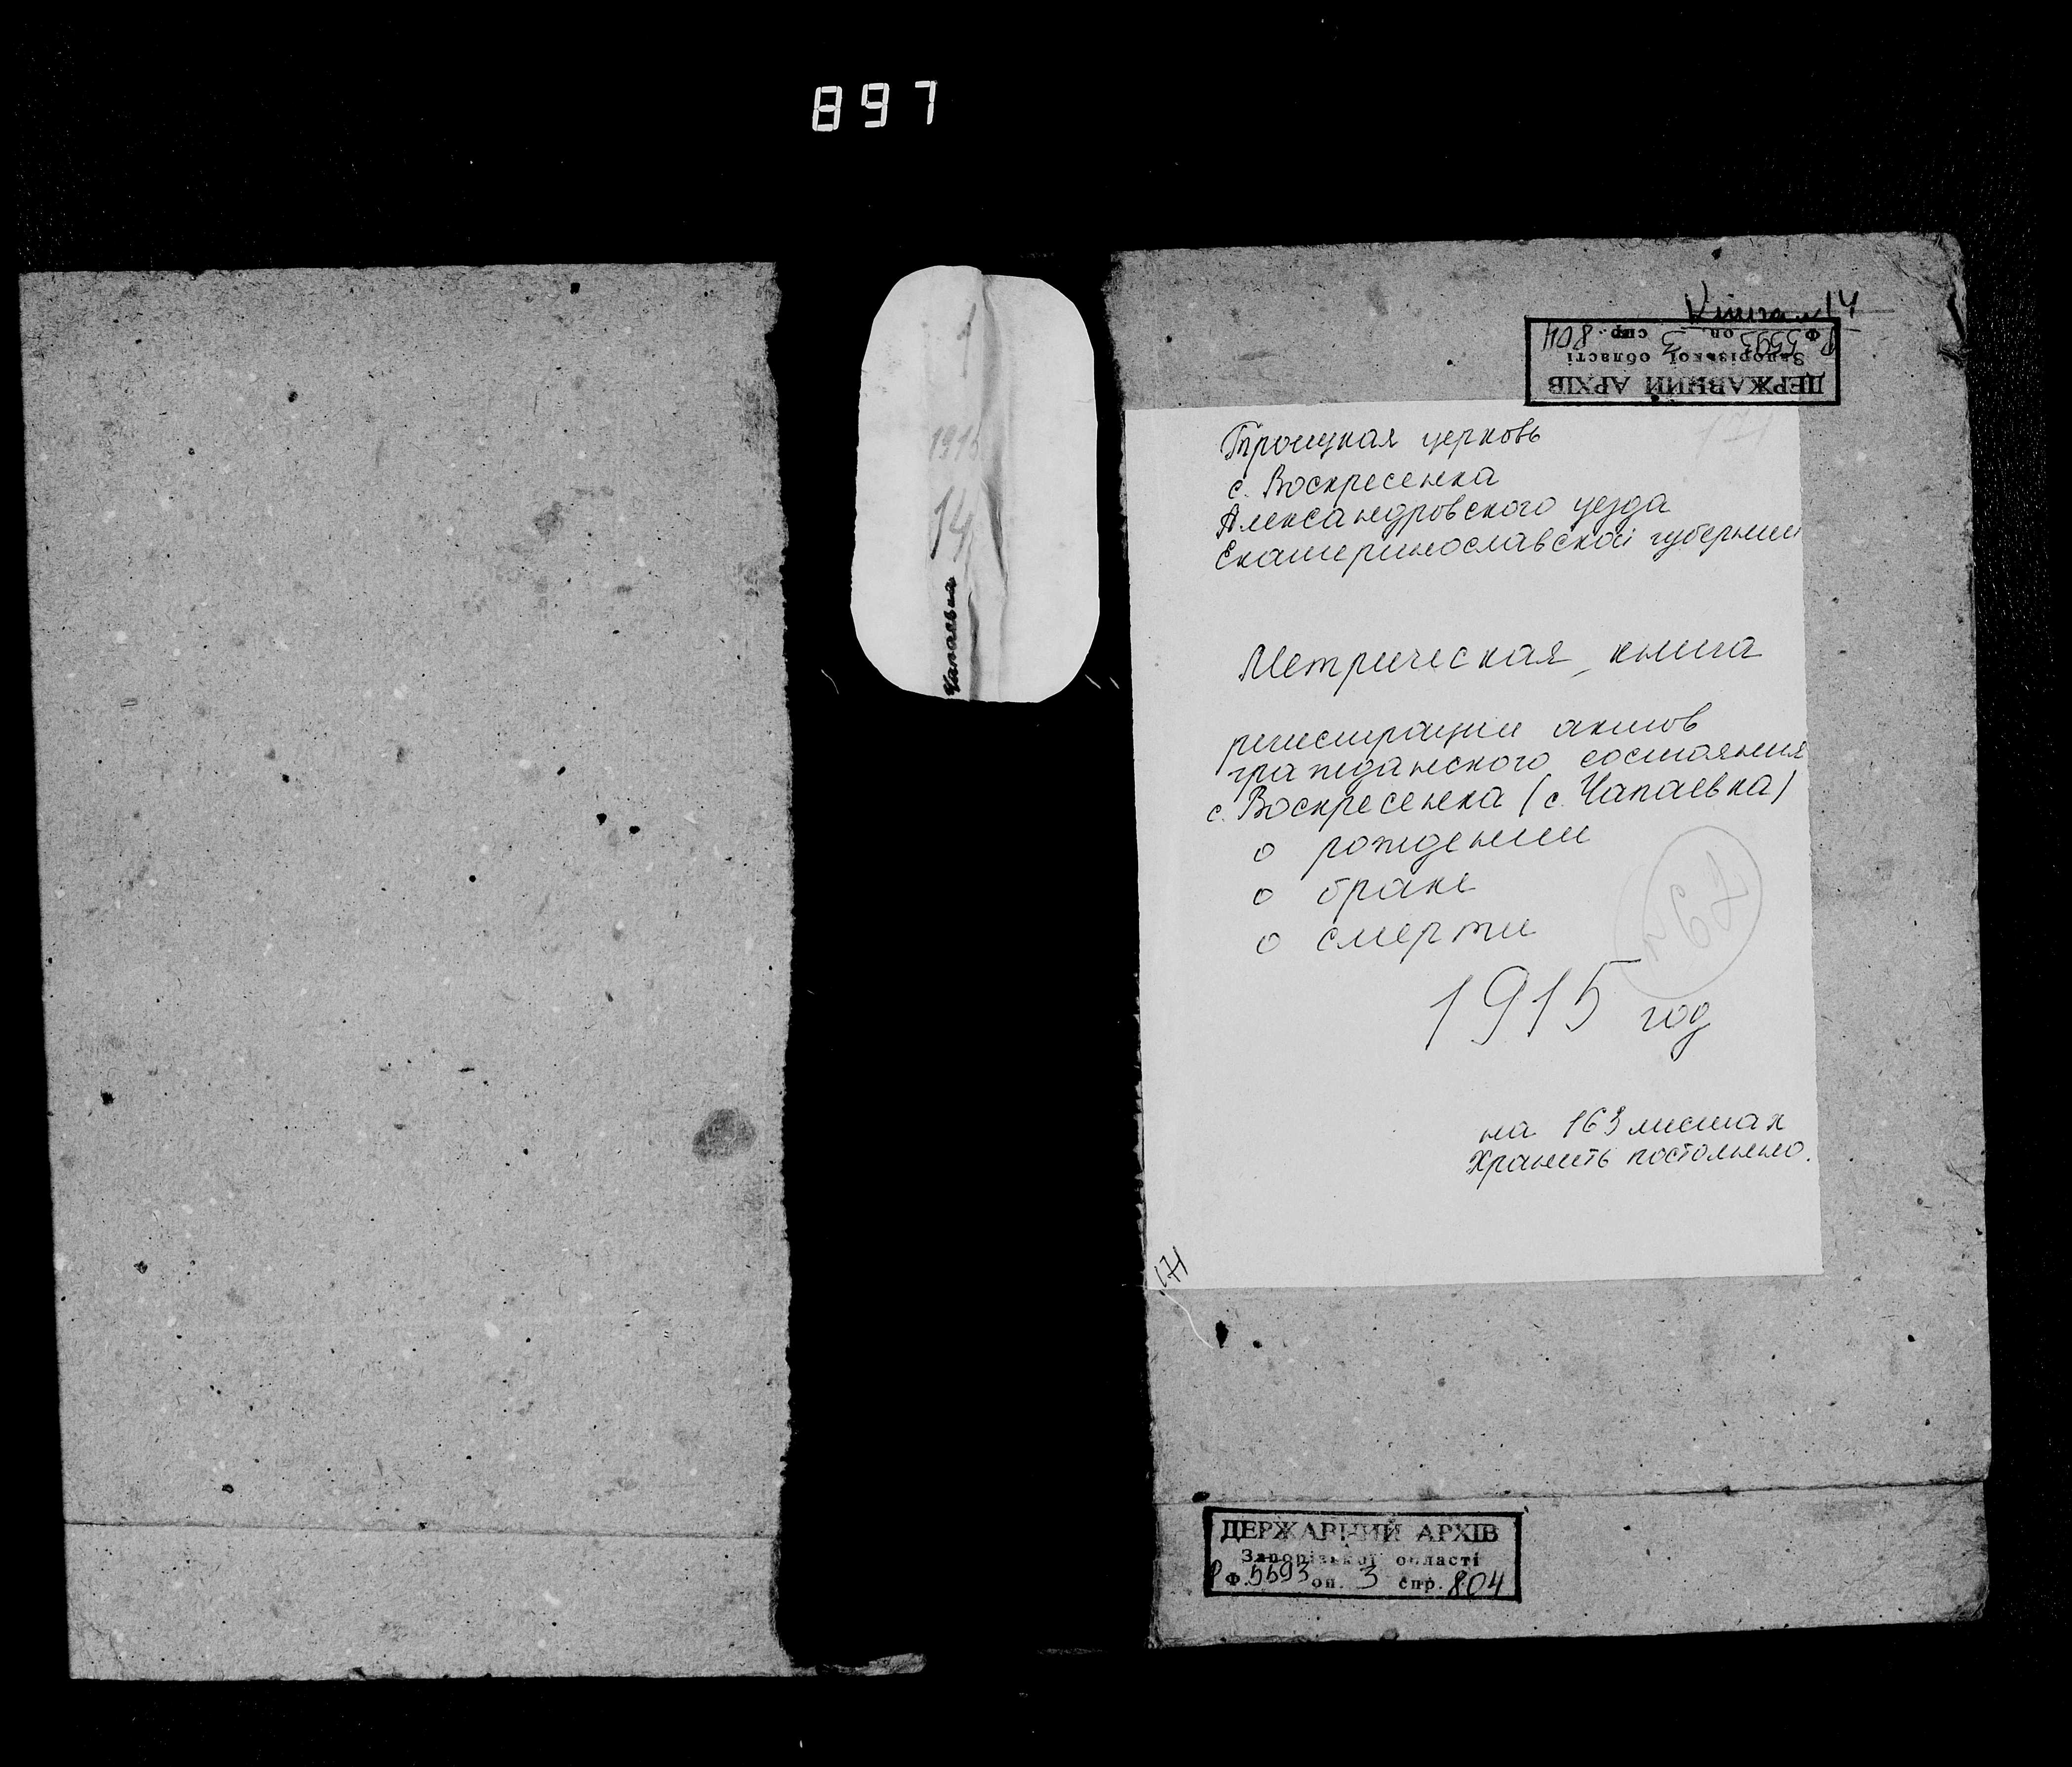 897
1
1915
14
Книга 14
ДЕРЖАВНИЙ АРХІВ
Запорізької області
Р Ф. 5593 оп. 3 спр. 804
171
Троицкая церковь
с. Воскресенка
Александровского уезда
Екатеринославской губернии
Метрическая книга
регистрации актов
гражданского состояния
с. Воскресенка (с. Чапаевка)
о рождении
о браке
о смерти
1915 год
на 163 листах
Хранить постоянно.
171
ДЕРЖАВНИЙ АРХІВ
Запорізької області
Р Ф. 5593 оп. 3 спр. 804